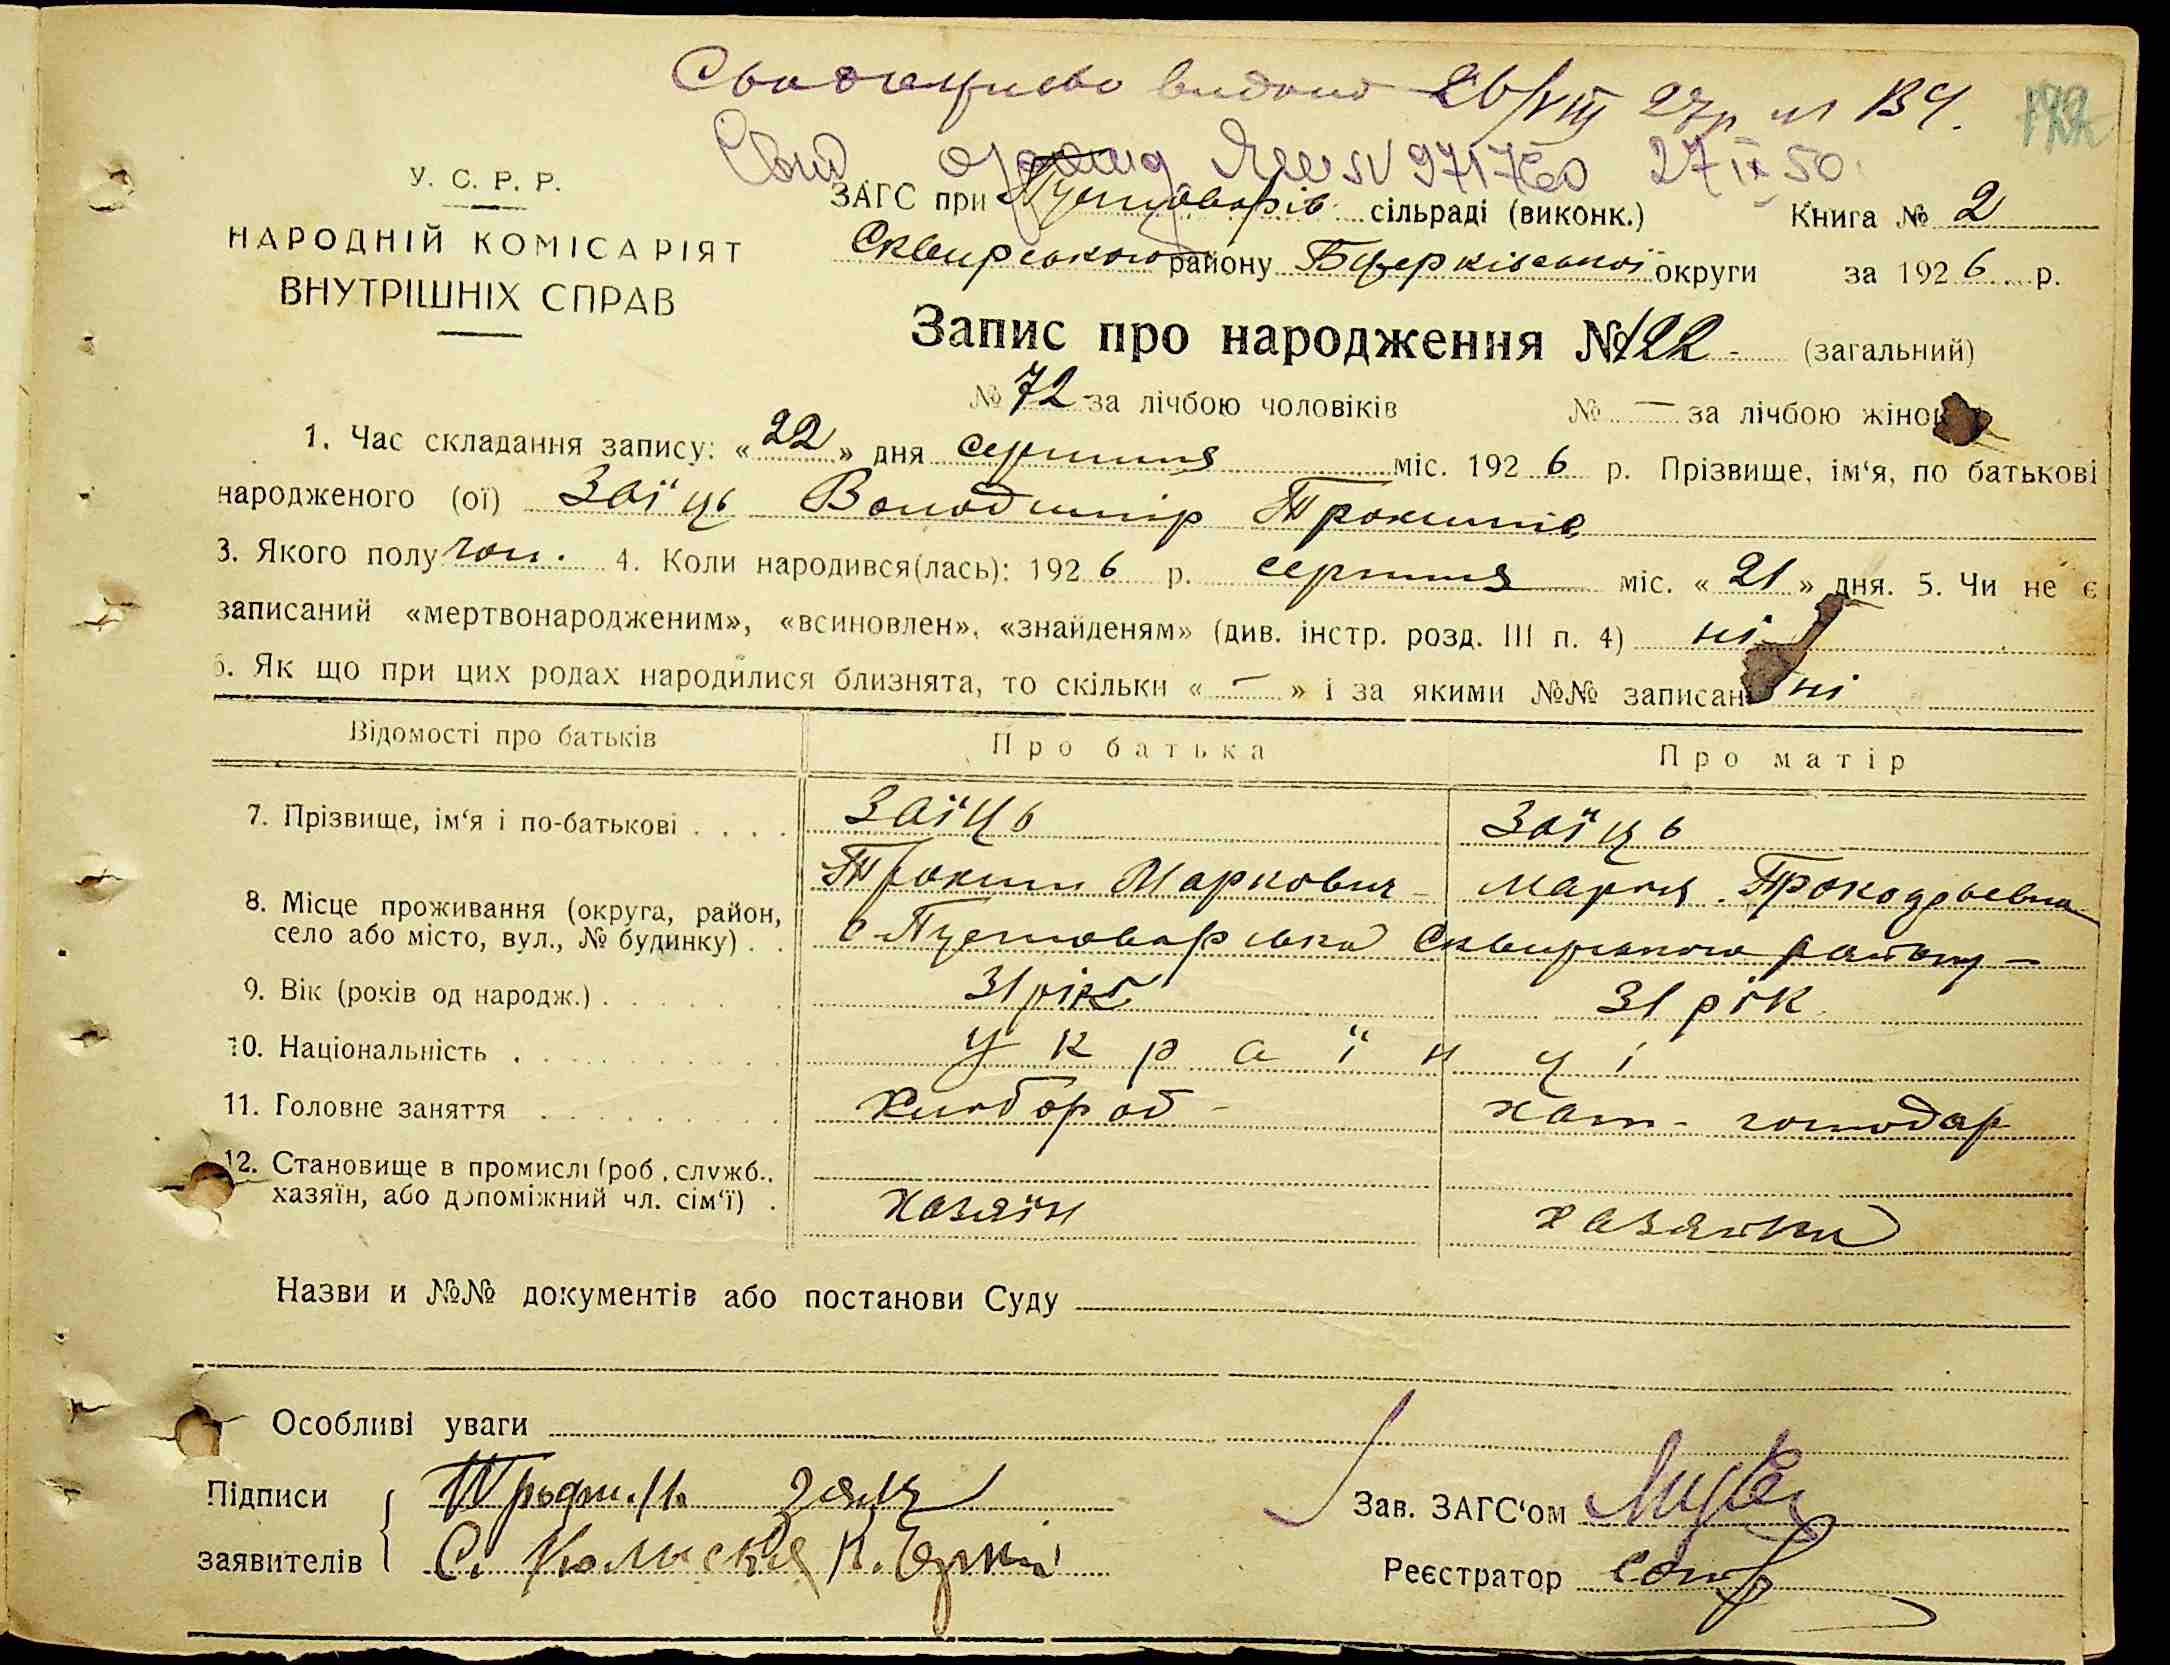 видано 26/VIII 27р № 134.
971760 27 IX 50.
У. С. Р. Р.
НАРОДНІЙ КОМІСАРІЯТ
ВНУТРІШНІХ СПРАВ
ЗАГС при Пустоварів сільраді (виконк.) Книга № 2
Сквирського району Бцерківської округи за 1926 р.
Запис про народження № 122 - (загальний)
№ 72 за лічбою чоловіків № — за лічбою жінок
1. Час складання запису: «22» дня серпня міс. 1926 р. Прізвище, ім‘я, по батькові
народженого (ої) Заїць Володимір Трохимів
3. Якого полу чол. 4. Коли народився(лась): 1926 р. серпня міс. «21» дня. 5. Чи не є
записаний «мертвонародженим», «всиновлен», «знайденям» (див. інстр. розд. III п. 4) ні
6. Як що при цих родах народилися близнята, то скільки « — » і за якими №№ записані ні
Відомості про батьків Про батька Про матір
7. Прізвище, ім‘я і по-батькові . . . . Заїць Заїць
Маркович - Мария
8. Місце проживання (округа, район,
село або місто, вул., № будинку) . . с. Пустоварівка Сквирського району —
9. Вік (років од народж.) 31 рік 31 рік
10. Національність українці
11. Головне заняття хлібороб - хат - господар
12. Становище в промислі (роб., служб.,
хазяїн, або допоміжний чл. сім‘ї) . хазяїн хазяйка
Назви и №№ документів або постанови Суду
Особливі уваги
Підписи
Зав. ЗАГС‘ом
заявителів
Реєстратор